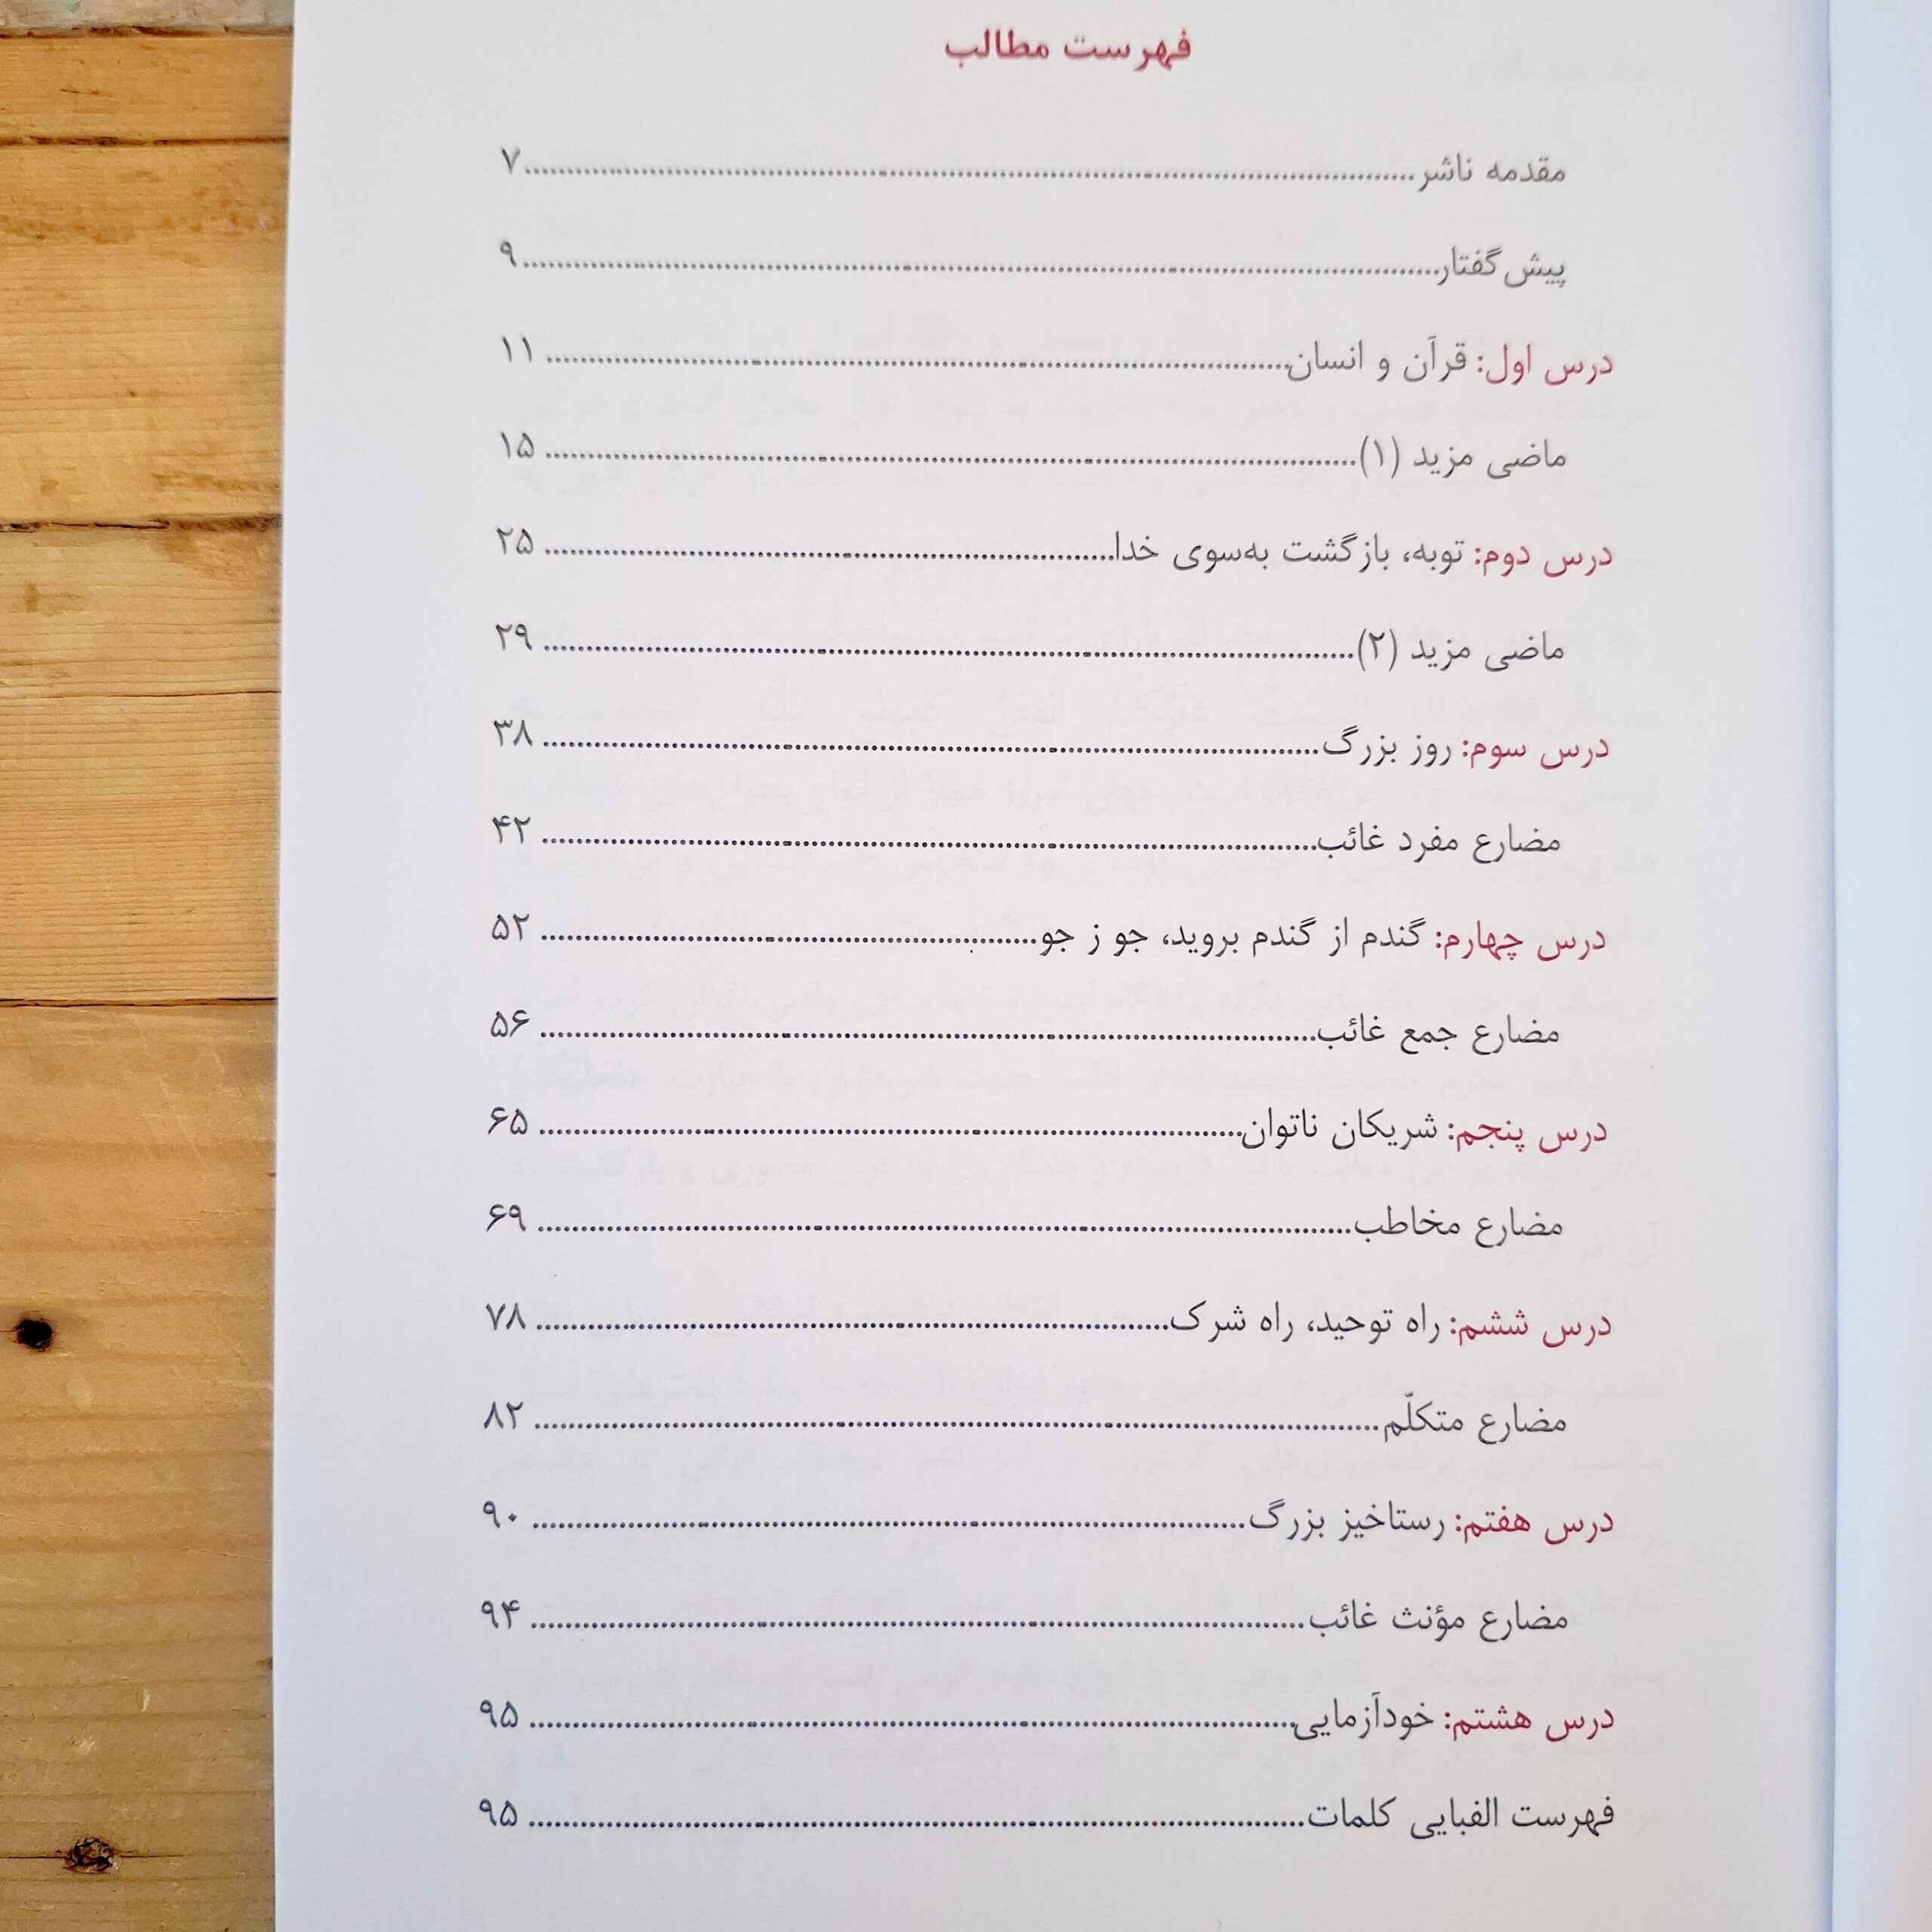 فهرست مطالب
مقدمه ناشر........................................۷
پیش‌گفتار........................................۹
درس اول: قرآن و انسان........................................ ۱۱
ماضی مزید (۱)........................................ ۱۵
درس دوم: توبه، بازگشت به‌سوی خدا........................................ ۲۵
ماضی مزید (۲)........................................ ۲۹
درس سوم: روز بزرگ........................................ ۳۸
مضارع مفرد غائب........................................ ۴۲
درس چهارم: گندم از گندم بروید، جو ز جو........................................ ۵۲
مضارع جمع غائب........................................ ۵۶
درس پنجم: شریکان ناتوان........................................ ۶۵
مضارع مخاطب........................................ ۶۹
درس ششم: راه توحید، راه شرک........................................ ۷۸
مضارع متکلّم........................................ ۸۲
درس هفتم: رستاخیز بزرگ........................................ ۹۰
مضارع مؤنث غائب........................................ ۹۴
درس هشتم: خودآزمایی........................................ ۹۵
فهرست الفبایی کلمات........................................ ۹۵